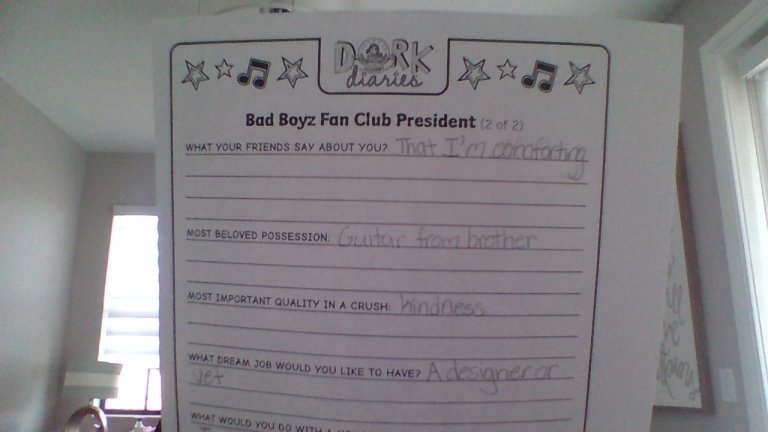 DORK
diaries
Bad Boyz Fan Club President (2 of 2)
WHAT YOUR FRIENDS SAY ABOUT YOU? That I'm comforting
MOST BELOVED POSSESSION: Guitar from brother
MOST IMPORTANT QUALITY IN A CRUSH: kindness
WHAT DREAM JOB WOULD YOU LIKE TO HAVE? A designer or
vet
WHAT WOULD YOU DO WITH A